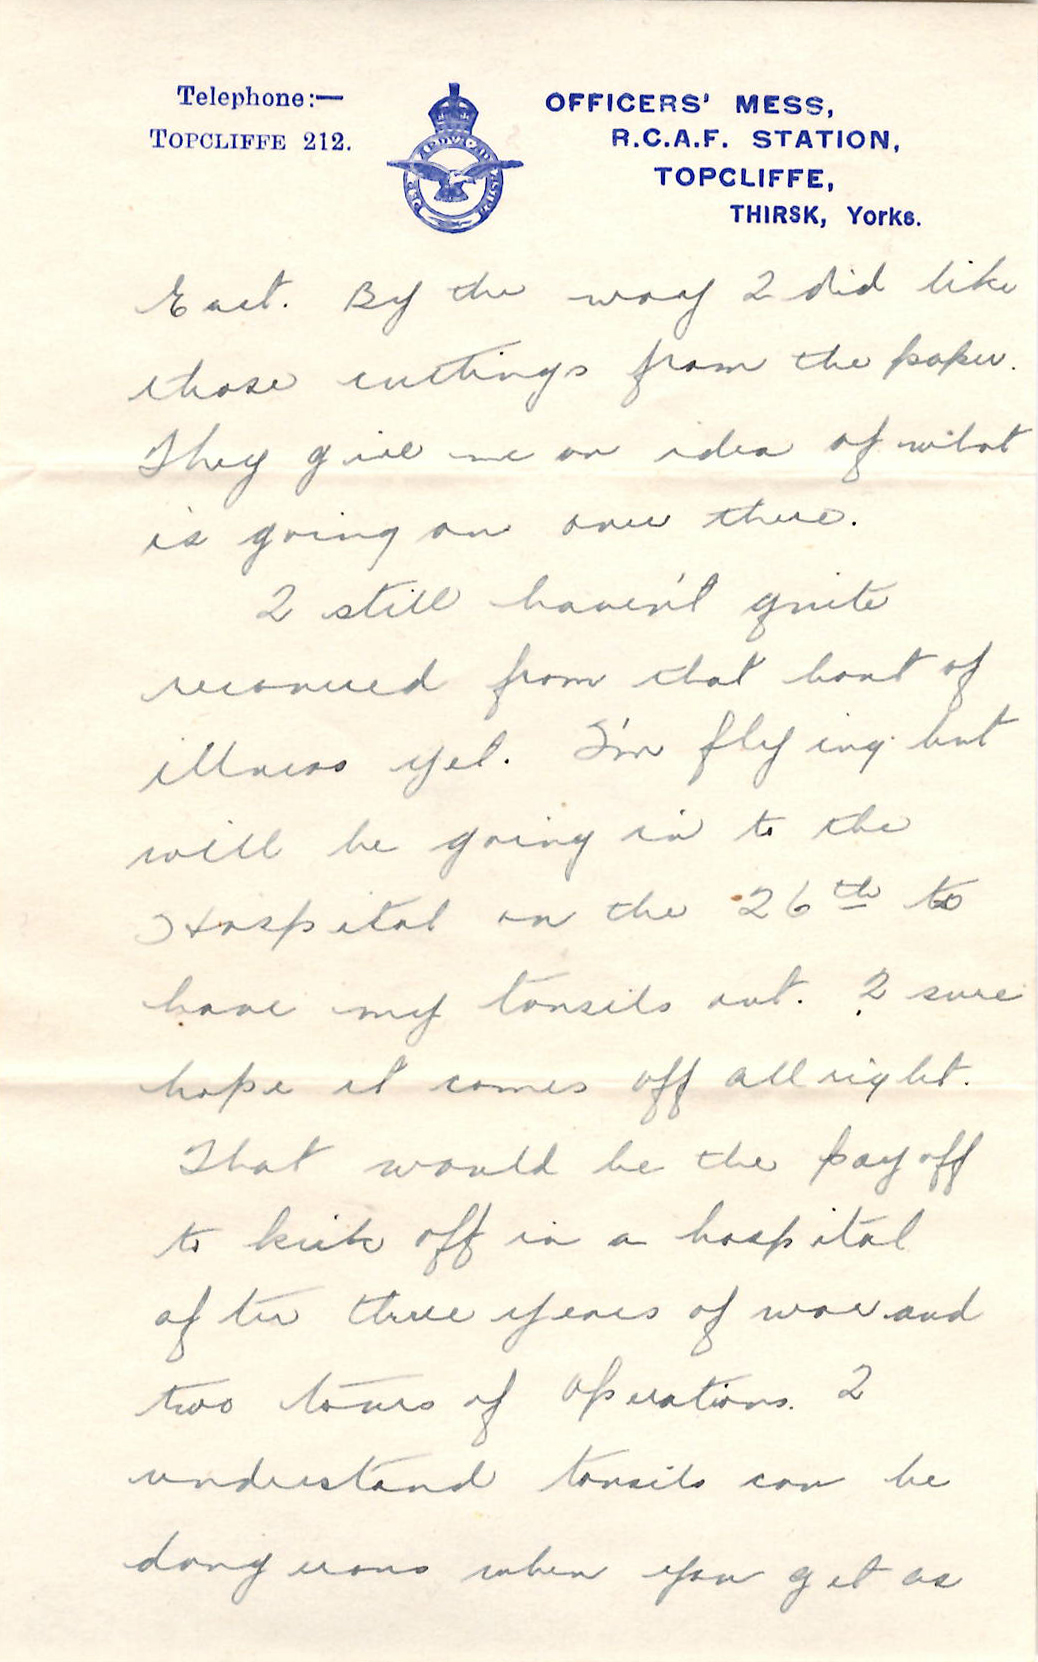 Telephone:—
TOPCLIFFE 212.
OFFICERS' MESS,
R.C.A.F. STATION,
TOPCLIFFE,
THIRSK, Yorks.
East. By the way I did like
those cuttings from the paper.
They give me an idea of what
is going on over there.
I still haven't quite
recovered from that bout of
illness yet. I'm flying but
will be going in to the
Hospital on the 26th to
have my tonsils out. I sure
hope it comes off all right.
That would be the pay off
to kick off in a hospital
after three years of war and
two tours of operations. I
understand tonsils can be
dangerous when you get as